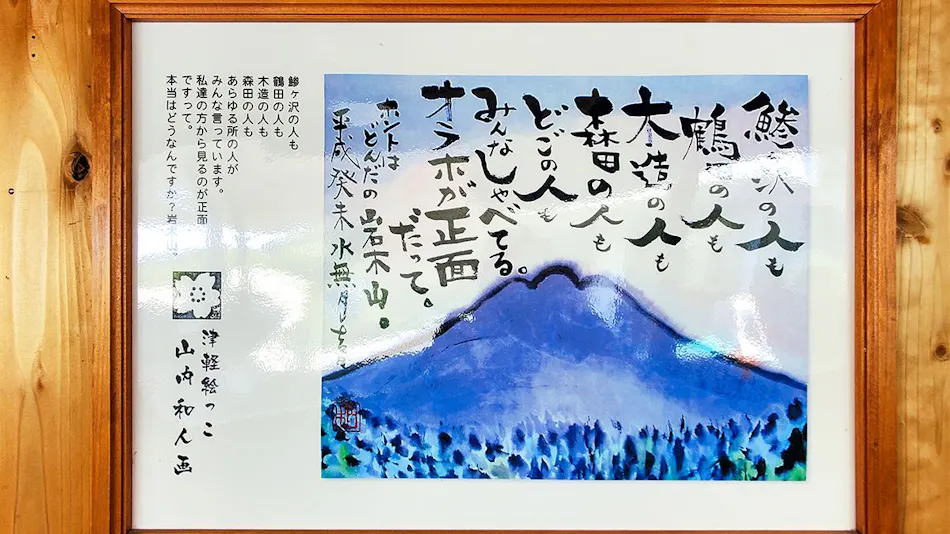 鰺ヶ沢の人も
鶴田の人も
木造の人も
森田の人も
どごの人も
みんなしゃべてる。
オラホが正面
だって。
ホントは
どんだの岩木山。
平成癸未水無月
鰺ヶ沢の人も
鶴田の人も
木造の人も
森田の人も
あらゆる所の人が
みんな言っています。
私達の方から見るのが正面
ですって。
本当はどうなんですか?岩木山。
津軽絵っこ
山内和人画